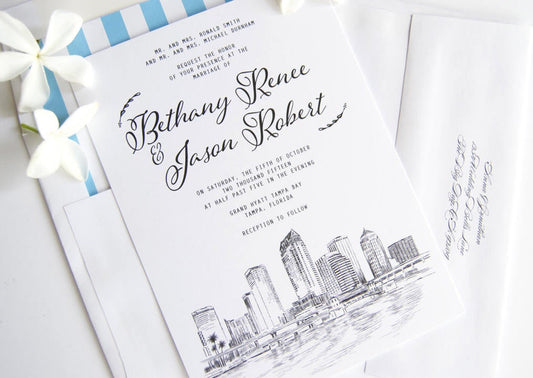 MR. AND MRS. RONALD SMITH
AND MR. AND MRS. MICHAEL DURNHAM
REQUEST THE HONOR
OF YOUR PRESENCE AT THE
MARRIAGE OF
Bethany Renee
& Jason Robert
ON SATURDAY, THE FIFTH OF OCTOBER
TWO THOUSAND FIFTEEN
AT HALF PAST FIVE IN THE EVENING
GRAND HYATT TAMPA BAY
TAMPA, FLORIDA
RECEPTION TO FOLLOW